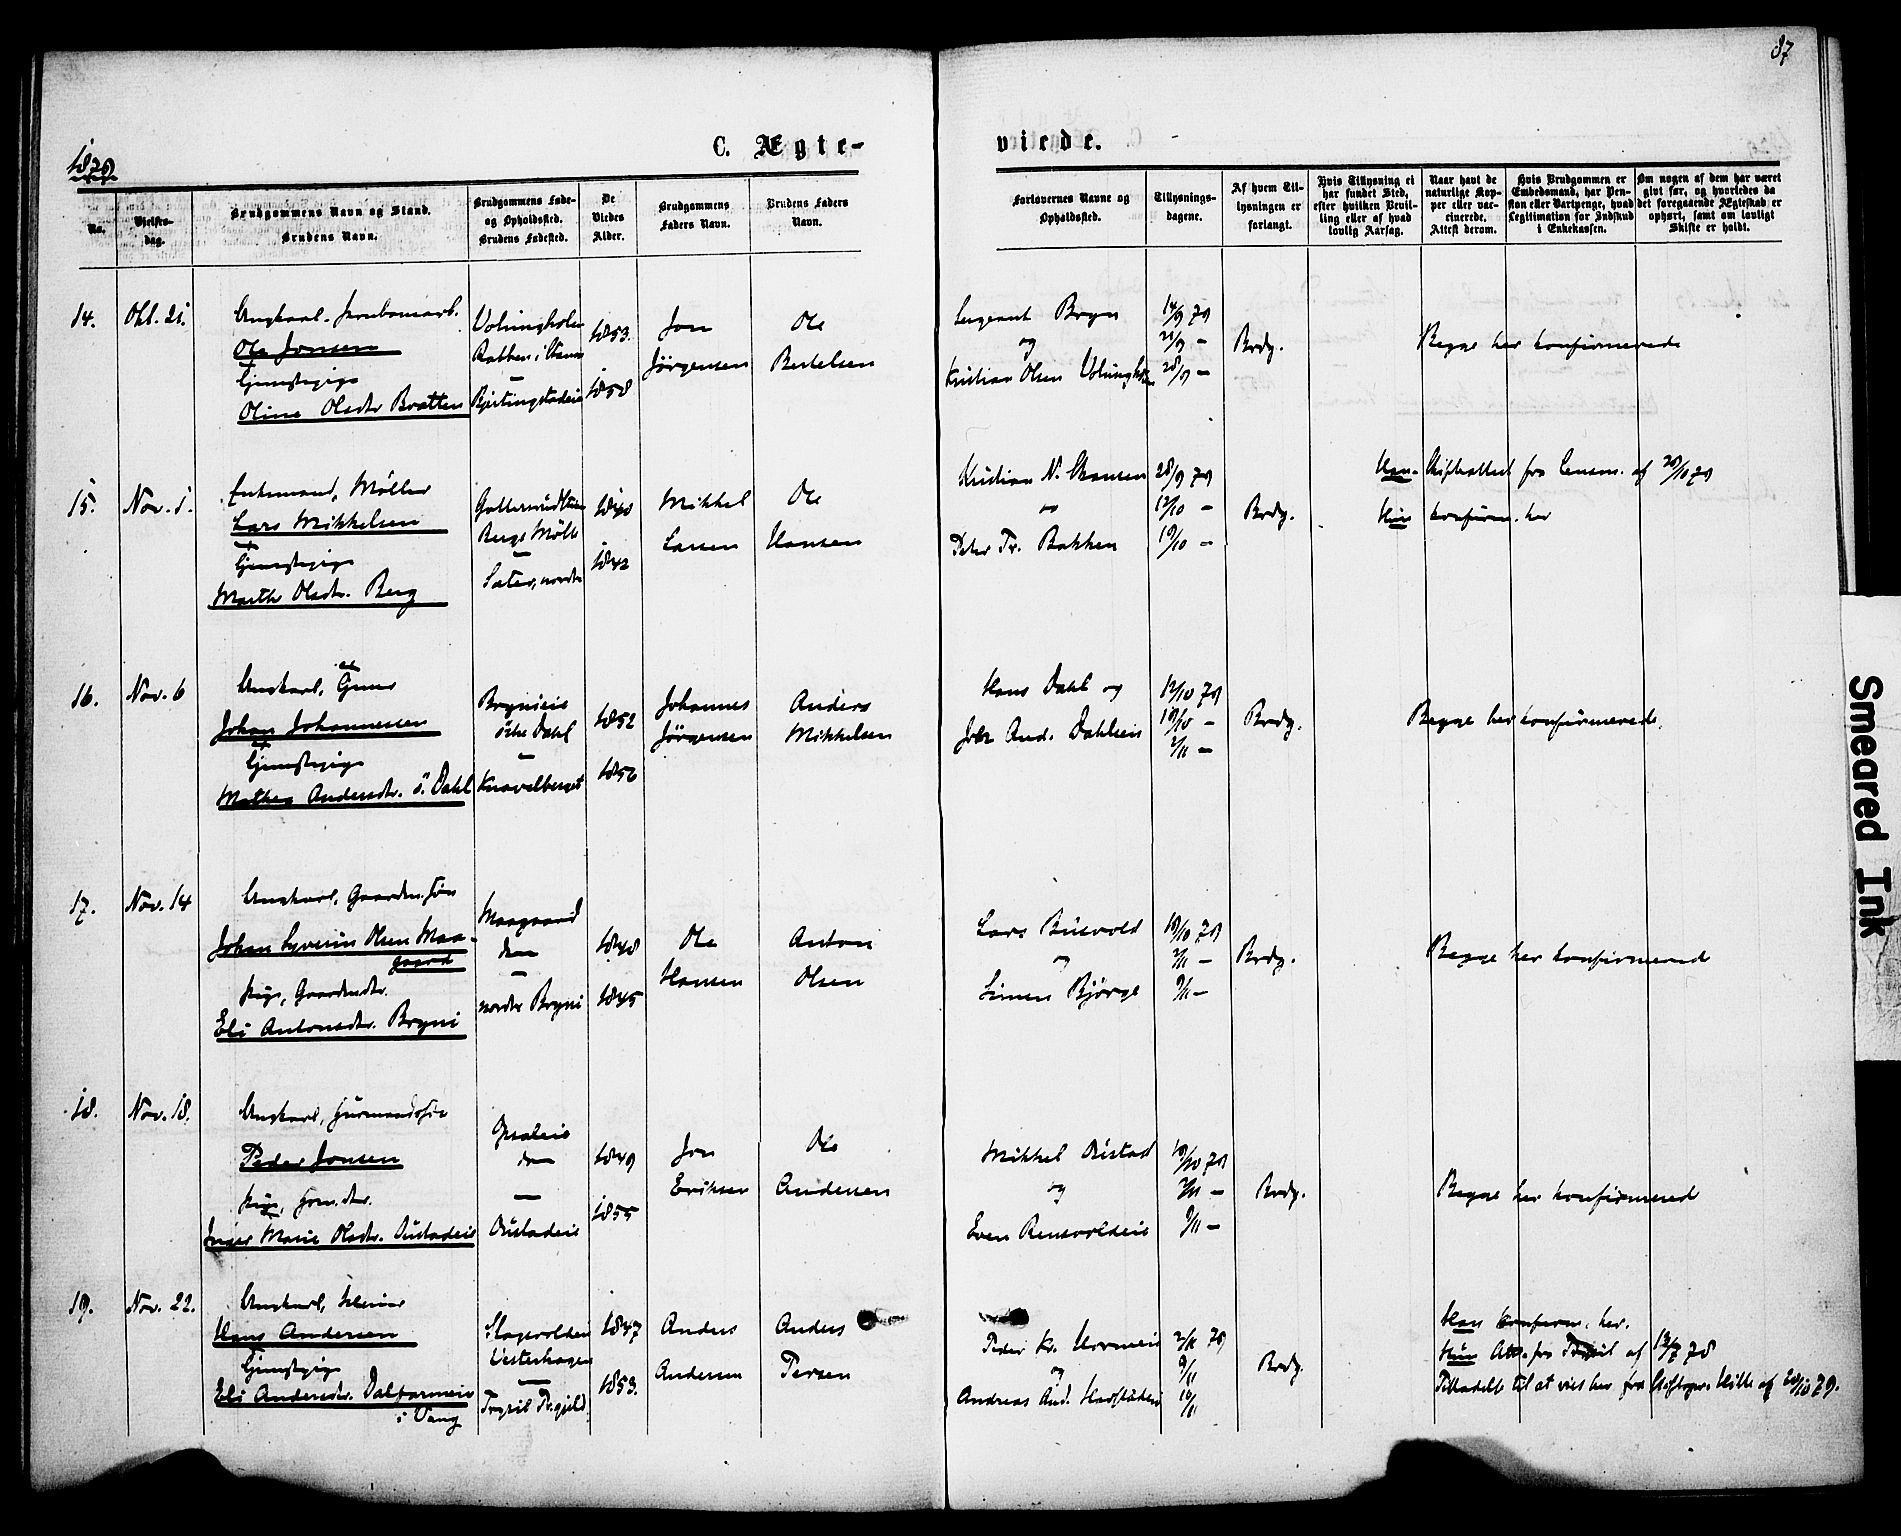 87
C. Ægte-
viede.
1879.
No.
Vielses-
dag.
Brudgommens Navn og Stand.
Brudens Navn.
Brudgommens Føde-
og Opholdssted.
Brudens Fødested.
De
Viedes
Alder.
Brudgommens
Faders Navn.
Brudens Faders
Navn.
Forlovernes Navne og
Opholdssted.
Tillysnings-
dagene.
Af hvem Til-
lysningen er
forlangt.
Hvis Tillysning ei
har fundet Sted,
efter hvilken Bevil-
ling eller af hvad
lovlig Aarsag.
Naar havt de
naturlige Kop-
per eller vac-
cinerede.
Attest derom.
Hvis Brudgommen er
Embedsmand, har Pen-
sion eller Vartpenge, hvad
Legitimation for Indskud
i Enkekassen.
Om nogen af dem har været
givt før, og hvorledes da
det foregaaende Ægteskab er
ophørt, samt om lovligt
Skifte er holdt.
14.
Okt. 21.
Ungkarl.
Ole Jonsen
Oline Olsdtr Bratten
1853.
1858
Jon
Jörgensen
Ole
Bertelsen
Sergeant Bryn
og
Kristian Olsen
14/9 79
21/9 -
28/9 -
Brdg.
Begge her konfirmerede
15.
Nov. 1.
Enkemand, Möller
Lars Mikkelsen
Marthe Olsdtr. Berg
Bergs Mölle
Sæter, nordre
1840
1842
Mikkel
Larsen
Ole
Hansen
Kristian N.
og
Peder Tr. Bakken
28/9 79
12/10 -
19/10 -
Brdg.
Han Skifteattest fra af 28/10 79
Hun konfirm. her
16.
Nov. 6
Ungkarl,
Johan Johannessen
Mathea Andersdtr. ö. Dahl
Brynieie
östre Dahl
Knavelberget
1852
1852
Johannes
Jörgensen
Anders
Mikkelsen
Hans Dahl og
Joh And. Dahlseie
12/10 79
19/10 -
2/11 -
Brdg.
Begge her konfirmerede.
17.
Nov. 14
Ungkarl, Gaardm.sön
Johan Syverin Olsen Maa-
gaard
Pige, Gaardmdtr.
Eli Antonsdtr. Bryni
Maagaard
dem
nordre Bryni
1848
1845
Ole
Hansen
Anton
Olsen
Lars
og
Simen Björge
19/10 79
2/11 -
9/11 -
Brdg.
Begge her konfirmered
18.
Nov. 18.
Ungkarl, Husmandssön
Peder Jonsen
Pige,
Inger Marie Olsdtr. Öustadeie
Opsaleie
Öustadeie
1849
1855
Jon
Eriksen
Ole
Andersen
Mikkel Öustad
og
Even
19/10 79
2/11 -
9/11 -
Brdg.
Begge her konfirmered
19.
Nov. 22.
Ungkarl,
Hans Andersen
Eli Andersdtr.
i Vang
Vesterhagen
Trysil Pr.gjeld
1847
1853.
Anders
Andersen
Anders
Persen
Peder Kr.
og
Andreas And.
2/11 79
9/11
16/11
Brdg.
Han konfirm. her.
Hun Att. fra Trysil af 13/7 78
Tilladelse til at vies her fra af 20/10 79.
Smeared Ink